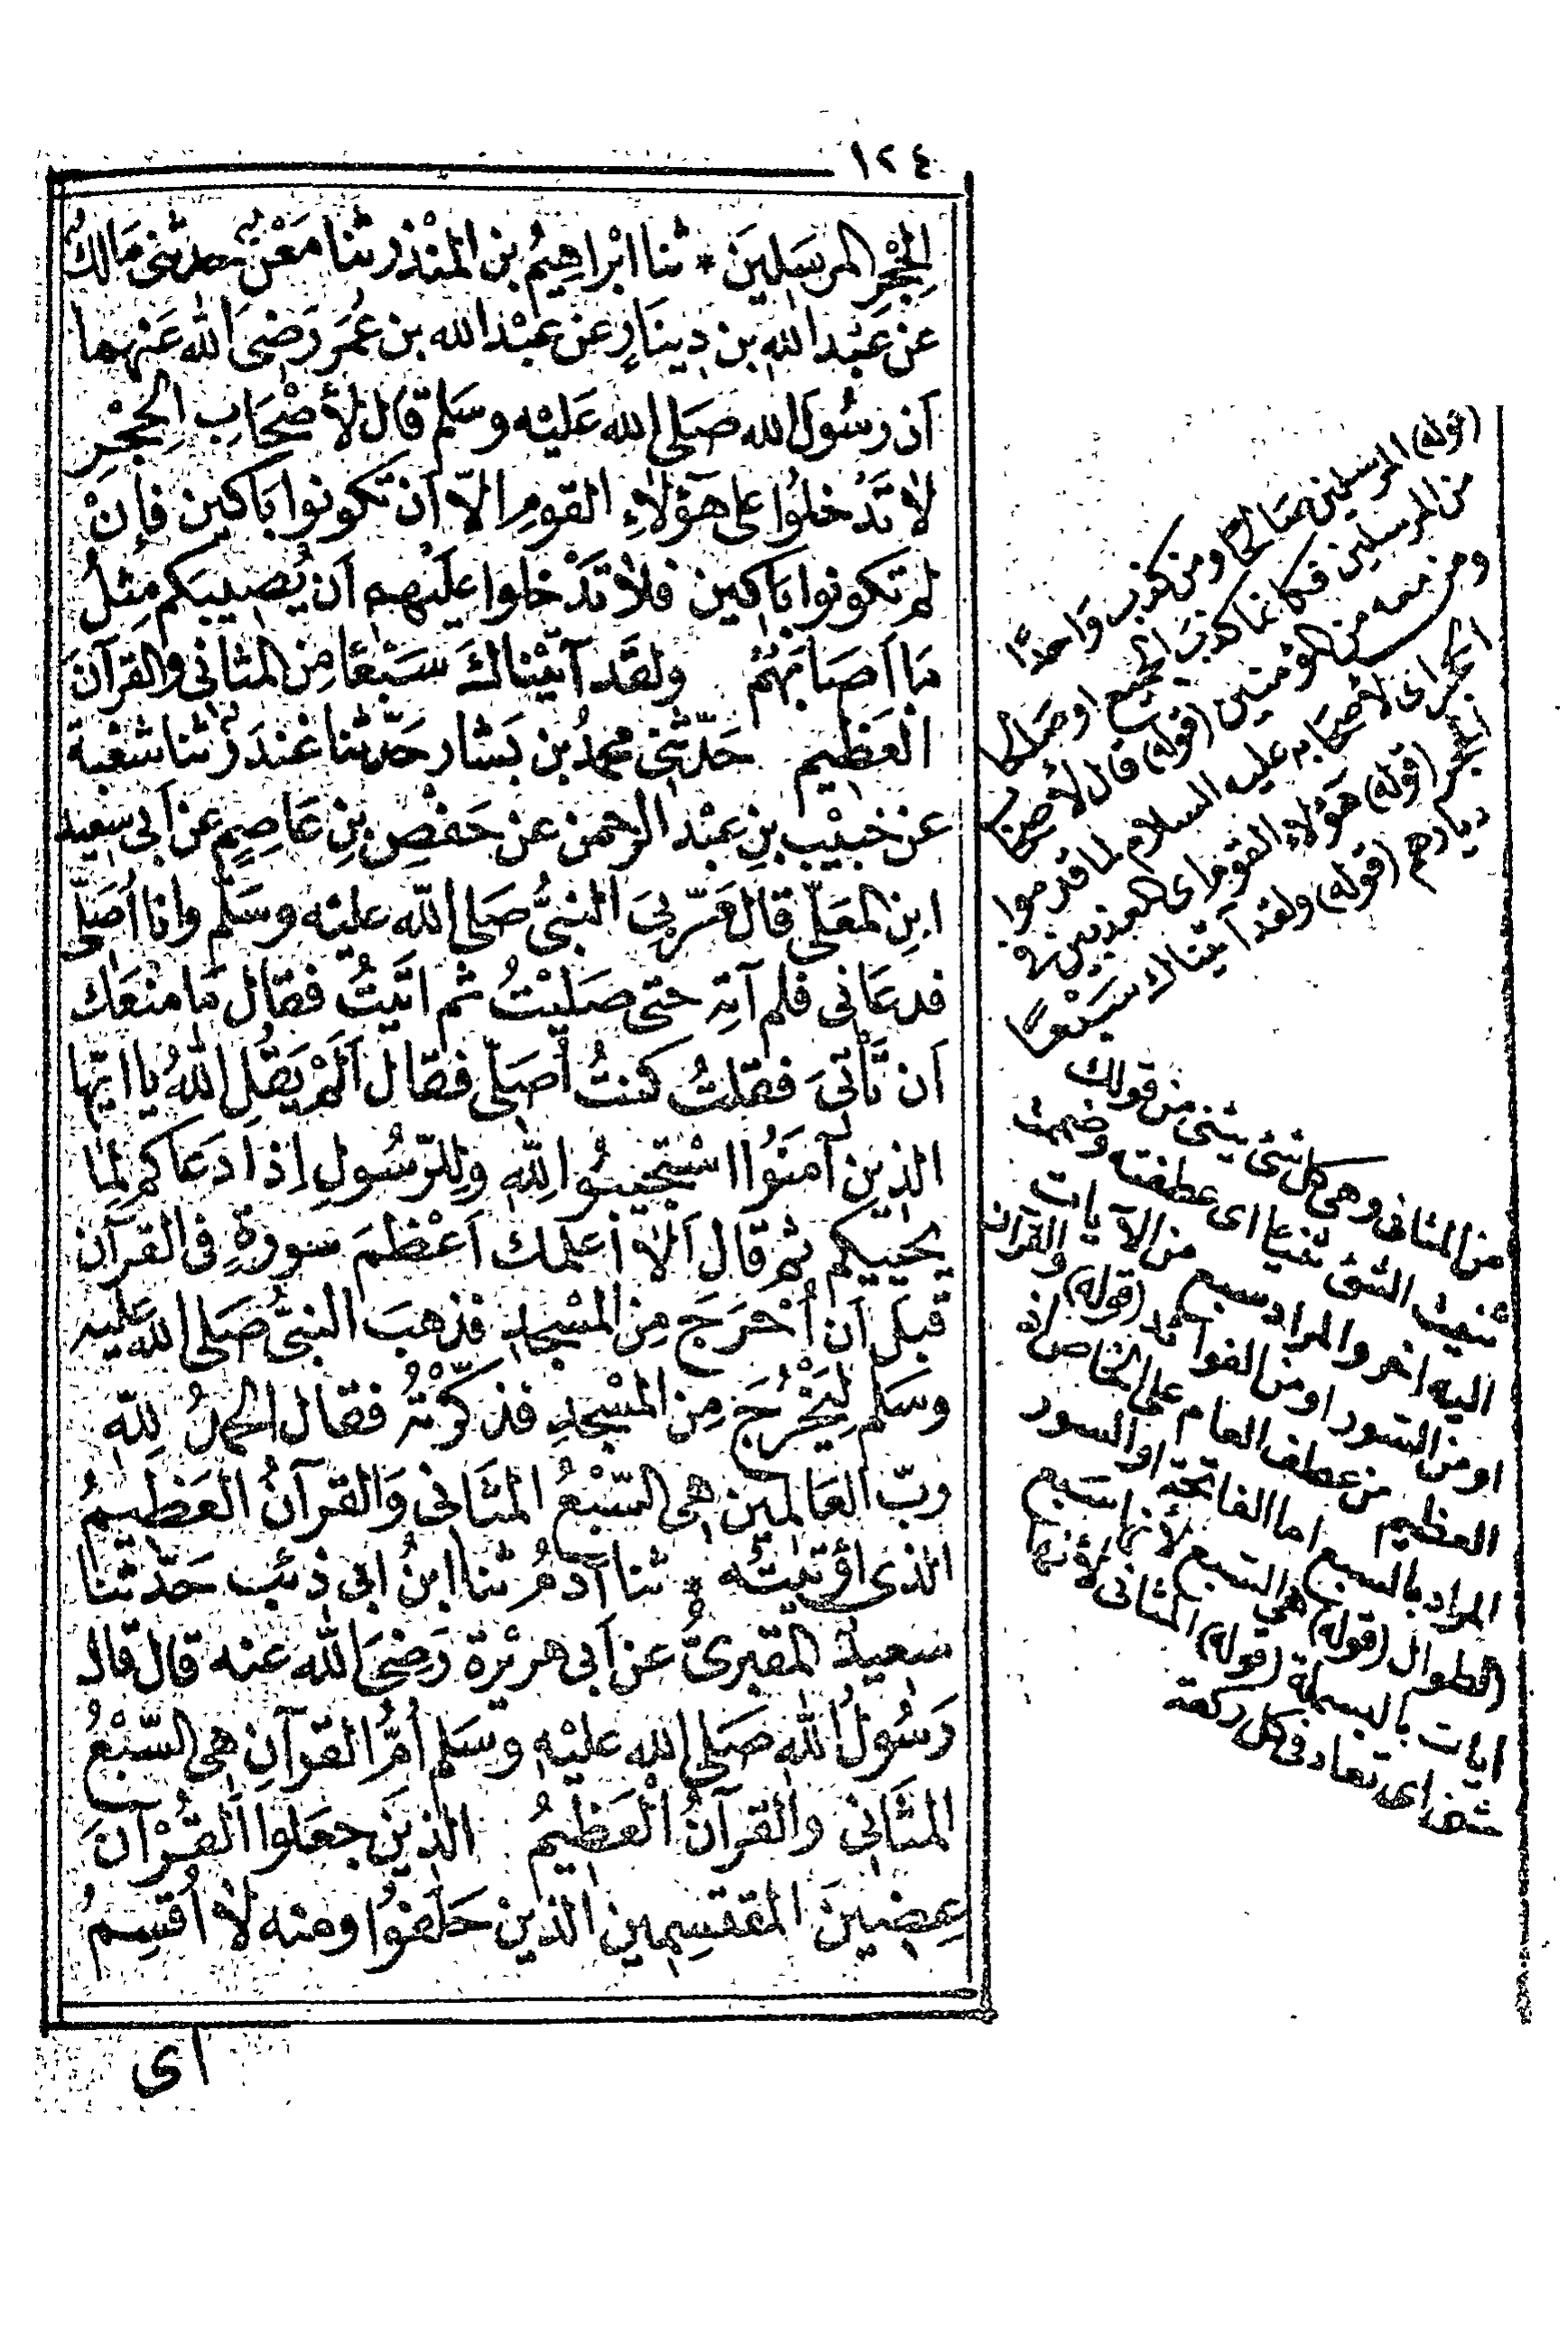 ١٢٤
الحِجْرِ المرسَلِينَ * ثنا ابْراهِيمُ بن المنْذر ثنا مَعْنٌ حدثنى مَالكٌ
عن عَبْدِ اللهِ بن دِينَارٍ عن عبْد الله بن عُمَر رَضِىَ الله عَنْهما
اَن رسُولَ الله صَلى الله عَليْه وسَلم قال لأصْحَابِ الحِجْرِ
لا تَدْخلُوا على هَؤلاءِ القومِ الاّ اَن تكونوا بَاكين فإنْ
لم تكونوا بَاكِين فلا تَدْخلوا عليْهم اَن يُصِيبَكم مِثلُ
مَا اَصَابَهُمْ ولقَد آتيْناكَ سَبْعًا مِن المثانى والقرآنَ
العَظِيم حَدّثنِى محمدُ بن بَشار حَدّثنا غنْدَرٌ ثنا شعْبة
عن خبيْب بنِ عبْد الرحمن عن حَفْصِ بنِ عَاصِمٍ عن اَبى سعيد
ابنِ المعَلّى قال مَرّ بىَ النبىُّ صَلى الله عليْه وسَلّم وانا اُصَلّى
فدعَانى فلم آتِهِ حتى صَليْتُ ثم اتَيتُ فقال مَا منْعَك
اَن تَأْتىَ فقلتُ كنتُ اُصَلّى فقال اَلمْ يَقُلِ اللهُ يا ايّها
الذين آمَنُوا اسْتجيبُوا لِلّهِ وللرّسُولِ إذا دَعَاكم لِمَا
يحييكم ثم قال اَلا اُعلمك اَعْظمَ سورةٍ فى القرآن
قبل اَن اُخْرَجَ مِن المسْجد فذهبَ النبىُّ صَلى الله عَليه
وسَلم لِيَخْرُجَ مِن المسْجدِ فذكّرْتُهُ فقال الحمدُ لِلّهِ
ربّ العَالمين هى السّبْعُ المثَانى وَالقرآنُ العَظيمُ
الذى اُوتيتُه * ثنا آدمُ ثنا ابنُ ابى ذئب حَدّثنا
سَعِيدٌ المقبرىُّ عن اَبى هريْرة رَضىَ الله عنه قال قال
رَسُولُ اللهِ صَلى الله عليْهِ وسَلم اُمُّ القرآنِ هى السّبْعُ
المثَانى والقرآنُ الْعَظِيمُ الذِينَ جعَلوا القُرْآنَ
عِضِينَ المقتسِمين الذين حَلَفوُا ومنه لا اُقسِمُ
اى
(قوله) المرسلين صالحًا ومن كذب واحدًا
من المرسلين فكانما كذبَ الجميع او صالحا
ومن معه من المؤمنين (قوله) قال لأصحاب
الحجر اى لأصحابه عليه السلام لما قدموا
الحجر (قوله) هَؤلاءِ القوم اى المعذبين فى
ديارهم (قوله) ولقد آتيناك سَبْعًا
من المثانى وهى كل شئ يثنى من قولك
ثنيت الشئ ثنيا اى عطفته وضممت
اليه اخر والمراد سبع من الآيات
او من السور او من الفوائد (قوله) والقرآن
العظيم من عطف العام على الخاص اذ
المراد بالسبع اما الفاتحة او السور
الطوال (قوله) هى السبع لأنها سبع
ايات بالبسملة (قوله) المثانى لأنها
تثنى اى تعاد فى كل ركعة